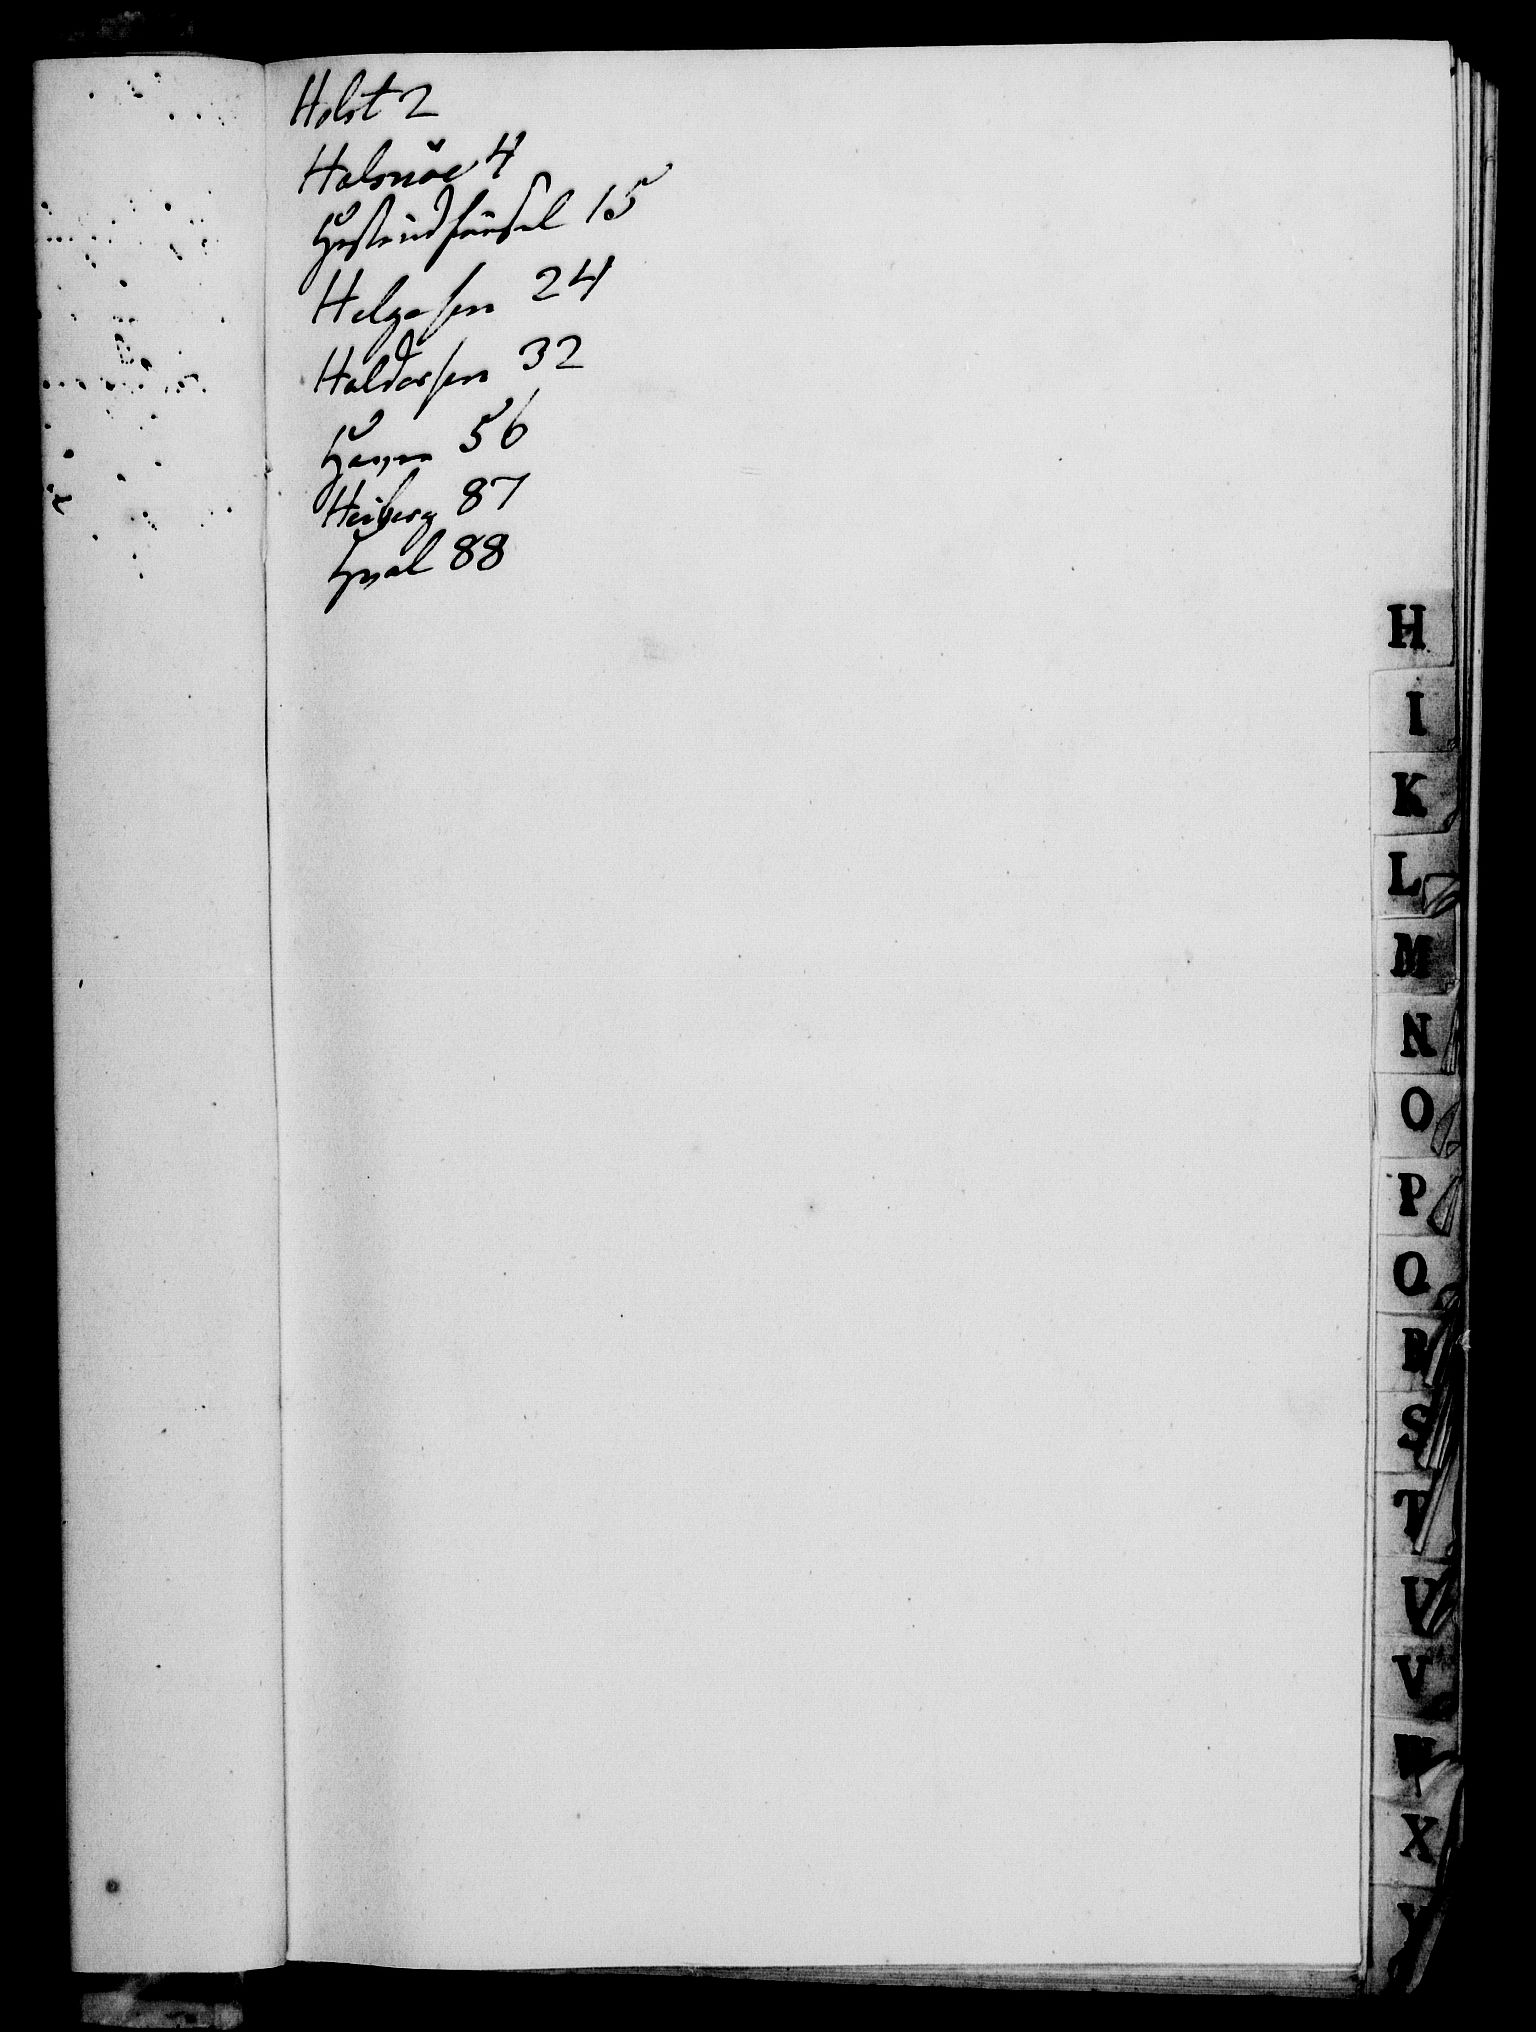 Holst 2
Halsnöe 4
15
Helgesen 24
Haldorsen 32
56
Heiberg 87
Hval 88
H
I
K
L
M
N
O
P
Q
R
S
T
U
V
W
X
Y